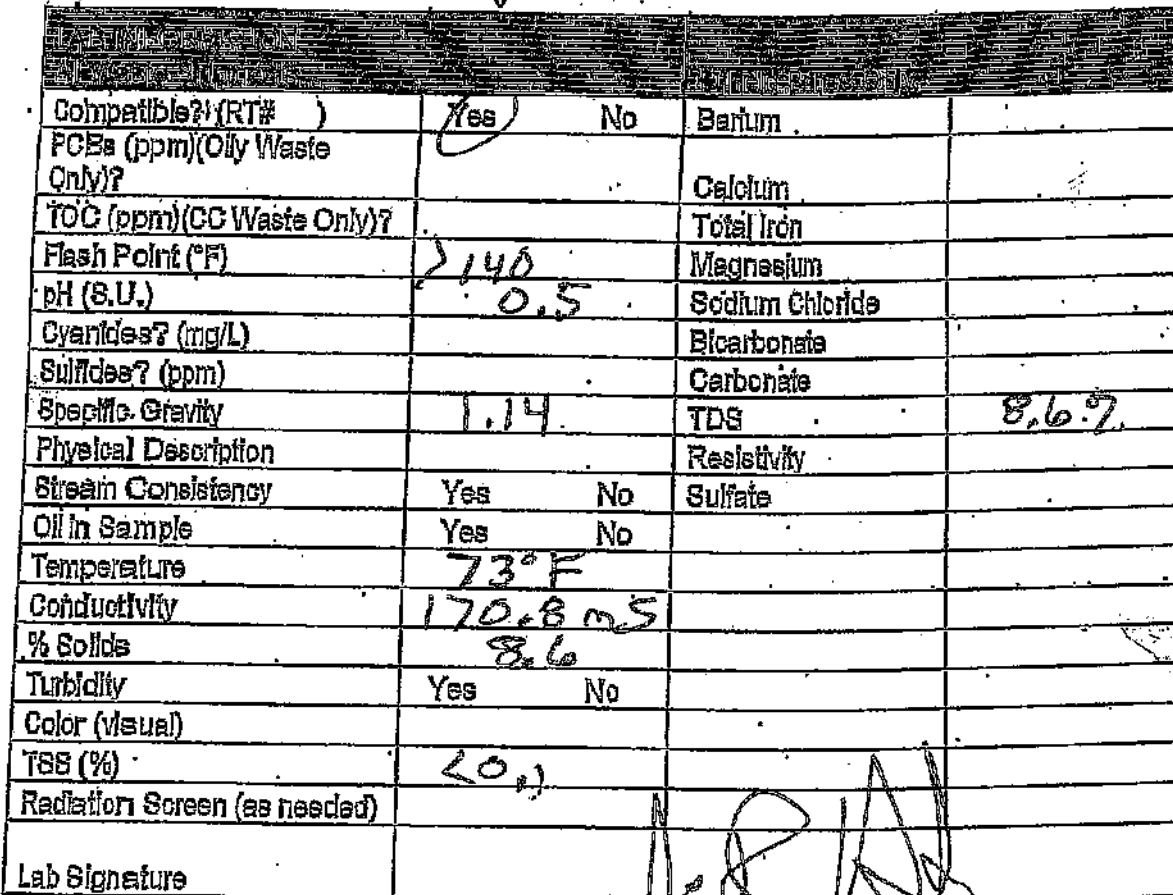 LAB INFORMATION
Compatible? (RT# ) Yes No Barium
PCBs (ppm)(Oily Waste
Only)? Calcium
TOC (ppm)(CC Waste Only)? Total Iron
Flash Point (°F) >140 Magnesium
pH (S.U.) 0.5 Sodium Chloride
Cyanides? (mg/L) Bicarbonate
Sulfides? (ppm) Carbonate
Specific Gravity 1.14 TDS 8.6%
Physical Description Resistivity
Stream Consistency Yes No Sulfate
Oil in Sample Yes No
Temperature 73°F
Conductivity 170.8 mS
% Solids 8.6
Turbidity Yes No
Color (visual)
TSS (%) <0.1
Radiation Screen (as needed)
Lab Signature